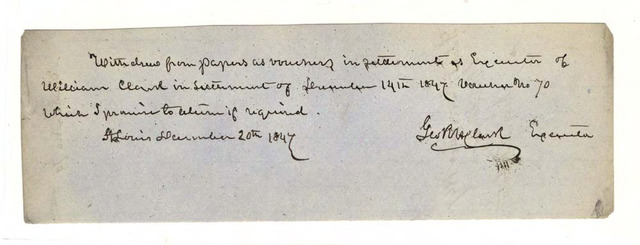 Withdrew from papers as vouchers in settlement as Executor of
William Clark in Settlement of December 14th 1847 Voucher No 70
which I promise to return if required.
St Louis December 20th 1847
Geo R H Clark Executor